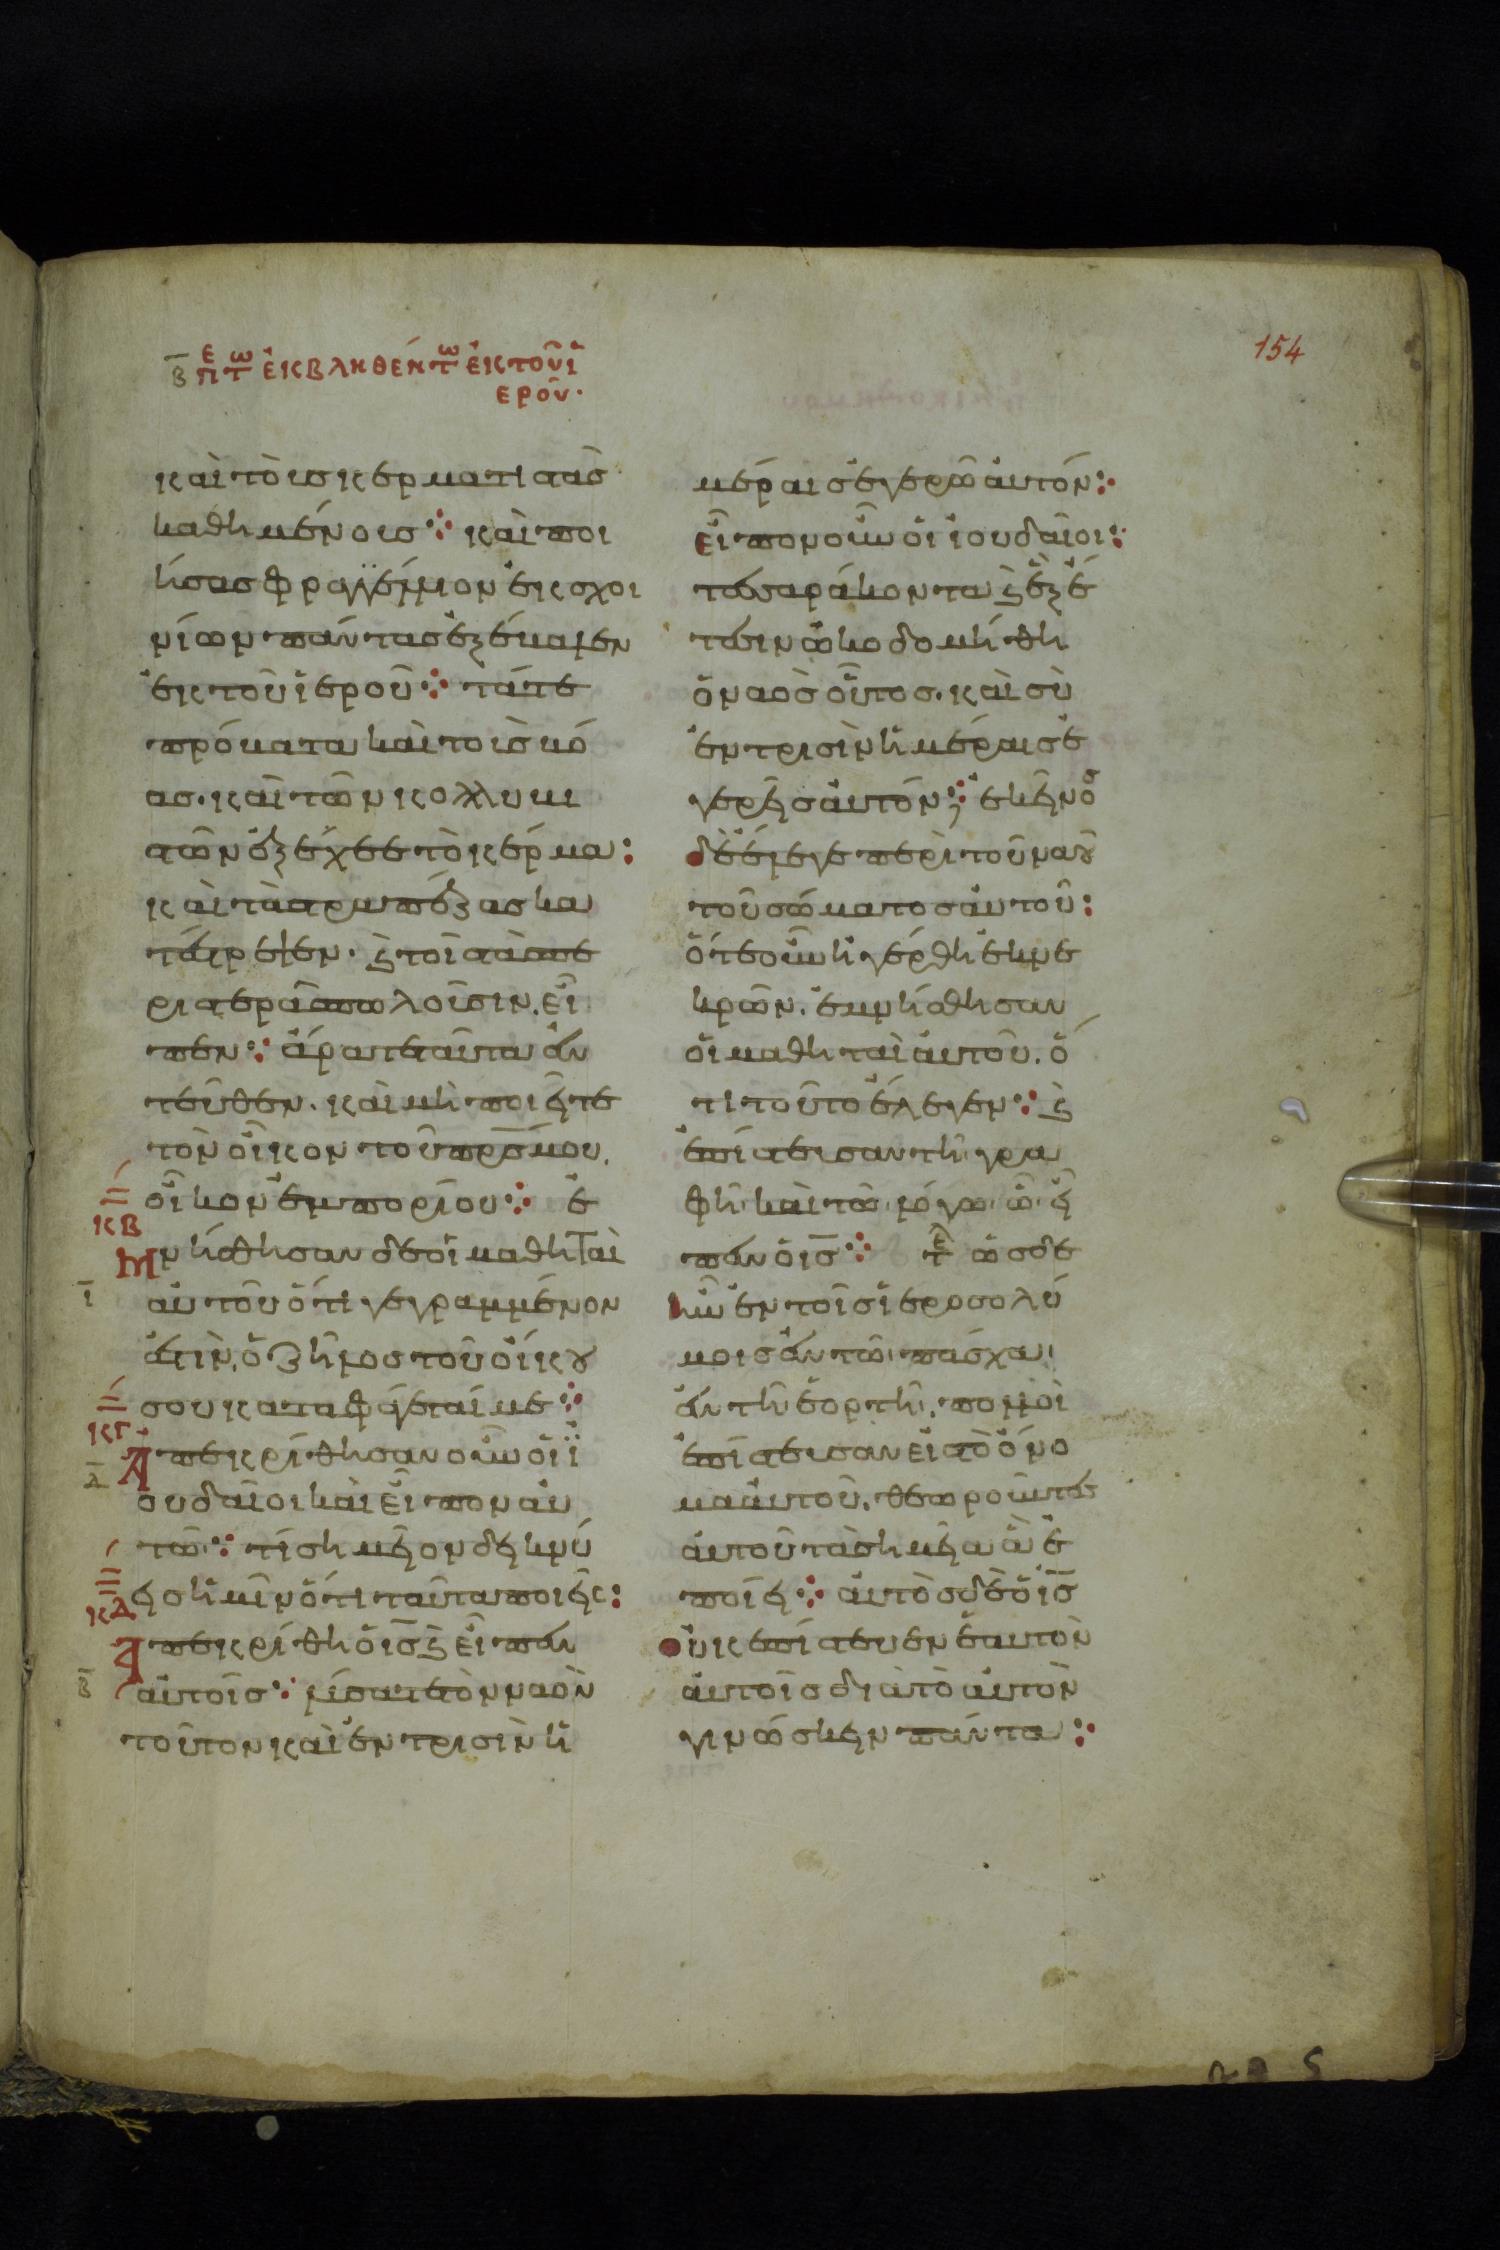 154
β̅ πε τω ἐκβληθέντω ἐκ τοῦ ἱ
εροῦ·
καὶ τοὺς κερματιστὰς
καθημένους· καὶ ποι
ήσας φραγγέλλιον ἐκ σχοι
νίων πάντας ἐξέβαλεν
ἐκ τοῦ ἱεροῦ· τά τε
πρόβατα καὶ τοὺς βό
ας· καὶ τῶν κολλυβι
στῶν ἐξέχεε τὸ κέρμα:
καὶ τὰς τραπέζας κα
τέστρεψεν· ϗ τοῖς τὰς πε
ριστερὰς πωλοῦσιν. εἶ
πεν· ἄρατε ταῦτα ἐν
τεῦθεν. καὶ μὴ ποιεῖτε
τὸν οἶκον τοῦ πρ̅σ μου.
οἶκον ἐμπορίου· ἐ
κβ
μνήσθησαν δὲ οἱ μαθηταὶ
ι̅
αὐτοῦ ὅτι γεγραμμένον
ἐστὶν, ὁ ζῆλος τοῦ οἴκου
σου καταφάγεταί με·
κγ
Ἀπεκρίθησαν οὖν οἱ ἰ
δ̅
ουδαῖοι καὶ εἶπον αὐ
τῶ· τί σημεῖον δεικνύ
εις ἡμῖν ὅτι ταῦτα ποιεῖς:
κδ
Ἀπεκρίθη ὁ ι̅σ ϗ εἶπεν
β̅
αὐτοῖς· λύσατε τὸν ναὸν
τοῦτον καὶ ἐν τρισὶν ἡ
μέραις ἐγερῶ αὐτόν:
εἶπον οὖν οἱ ἰουδαῖοι:
τεσσαράκοντα ϗ ἓξ ἔ
τεσιν ὠκοδομήθη
ὁ ναὸς οὗτος. καὶ σὺ
ἐν τρισὶν ἡμέραις ἐ
γερεῖς αὐτόν; ἐκεῖνος
δὲ ἔλεγε περὶ τοῦ ναοῦ
τοῦ σώματος αὐτοῦ:
ὅτε οὖν ἠγέρθη ἐκ νε
κρῶν. ἐμνήσθησαν
οἱ μαθηταὶ αὐτοῦ. ὅ
τι τοῦτο ἔλεγεν· ϗ
ἐπίστευσαν τῆ γρα
φῆ καὶ τῶ λόγω ὧ εἶ
πεν ὁ ι̅σ· τε ὡς δὲ
ἦν ἐν τοῖς ἱεροσολύ
μοις ἐν τῶ πάσχα
ἐν τῆ ἑορτῆ. πολλοὶ
ἐπίστευσαν εἰς τὸ ὄνο
μα αὐτοῦ. θεωροῦντες
αὐτοῦ τὰ σημεῖα ἃ ἐ
ποίει· αὐτὸς δὲ ὁ ι̅σ
οὐκ ἐπίστευεν ἑαυτὸν
αὐτοῖς διὰ τὸ αὐτὸν
γινώσκειν πάντα: